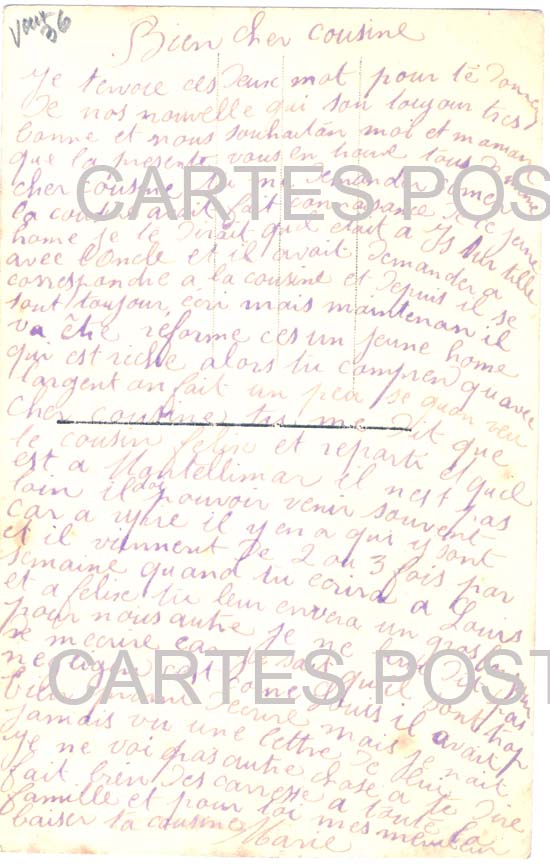 Bien cher cousine
Je tenvoie ces deux mot pour te donner
de nos nouvelle qui son toujour tres
bonne et nous souhaitan moi et maman
que la présente vous en trouve tous de meme
cher cousine tu me demander comme
la cousine avait fait connaisance de le jeune
home je te dirait quel etait a Is sur tille
avec l'oncle et il avait demander a
correspondre a la cousine et depuis il se
sont toujour écri mais maintenan il
va être reforme ces un jeune home
qui est riche alors tu compren quavec
largent on fait un peu se quon veu
cher cousine tu me dit que
le cousin felix et reparti et quil
est a Montellimar il nest pas
loin il doi pouvoir venir souvent
car a il y en a qui y sont
et il viennent de 2 ou 3 fois par
semaine quand tu ecrira a Louis
et a felix tu leur envera un gros
pour nous autre je ne leur dis pas
de mecrire car je sait qu'il sont trop
negligen cest come Louis il avait
bien promi decrire mais je nait
jamais vu une lettre de lui
Je ne voi pas autre chose a te dire
fait bien des carresse a toute la
famille et pour toi mes meilleur
baiser ta cousine
Marie
CARTES POST
CARTES POST